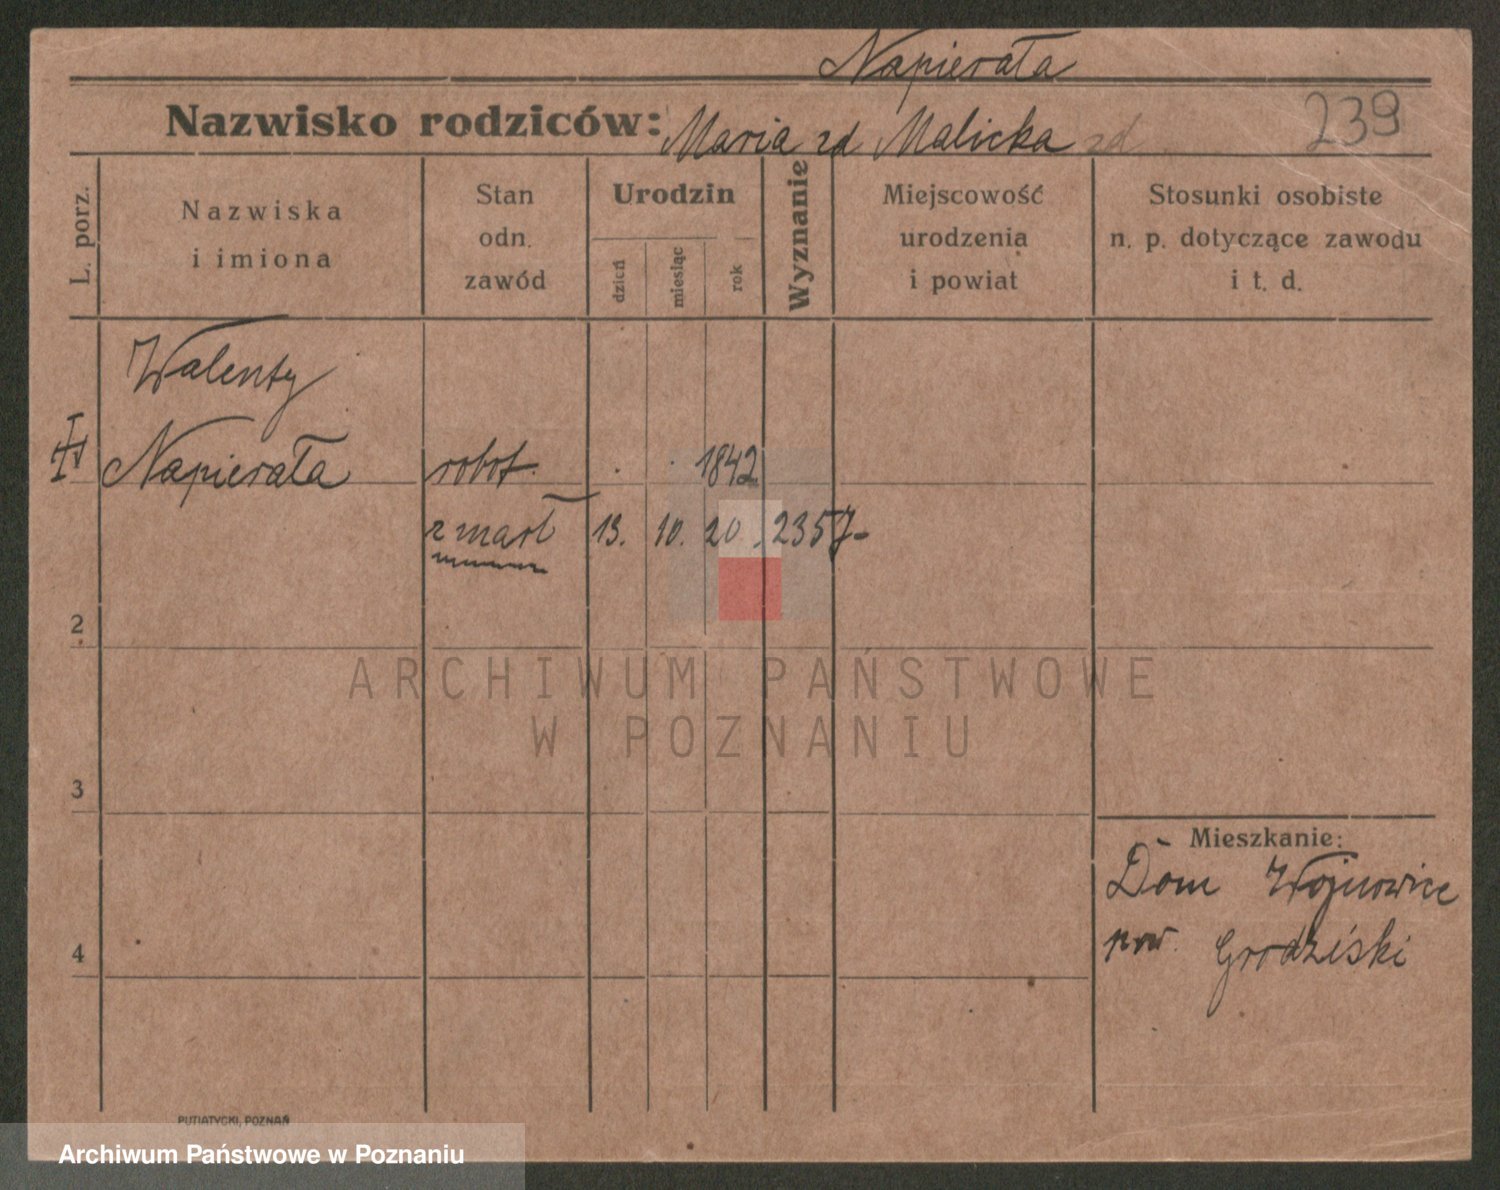 Napierała
Nazwisko rodziców: Maria zd Malicka zd
239
L. porz.
Nazwiska
i imiona
Stan
odn.
zawód
Urodzin
dzień
miesiąc
rok
Wyznanie
Miejscowość
urodzenia
i powiat
Stosunki osobiste
n. p. dotyczące zawodu
i t. d.
Walenty
Napierała robot. . . 1842
zmarł 13. 10. 20. 2357-
2
3
4
Mieszkanie:
Dom Wojnowice
pow. Grodziski
ARCHIWUM PAŃSTWOWE
W POZNANIU
PUTIATYCKI, POZNAŃ
Archiwum Państwowe w Poznaniu